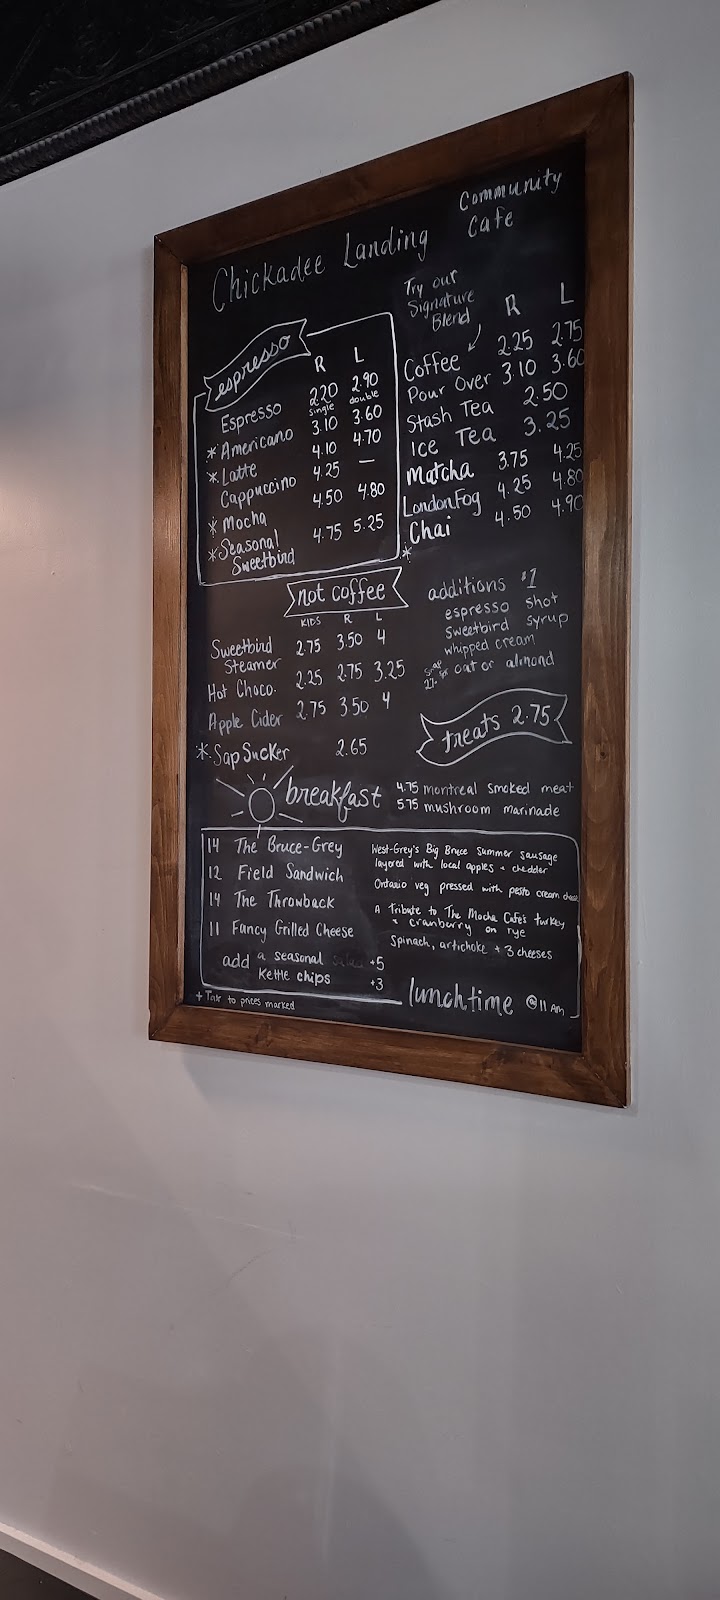 Chickadee Landing
Community
Cafe
espresso
R L
Espresso 2.20 2.90
single double
* Americano 3.10 3.60
* Latte 4.10 4.70
Cappuccino 4.25 —
* Mocha 4.50 4.80
* Seasonal
Sweetbird 4.75 5.25
Try our
Signature
Blend
R L
Coffee 2.25 2.75
Pour Over 3.10 3.60
Stash Tea 2.50
Ice Tea 3.25
Matcha 3.75 4.25
London Fog 4.25 4.80
Chai 4.50 4.90
*
not coffee
KIDS R L
Sweetbird
Steamer 2.75 3.50 4
Hot Choco. 2.25 2.75 3.25
Apple Cider 2.75 3.50 4
* Sap Sucker 2.65
additions $1
espresso shot
sweetbird syrup
whipped cream
oat or almond
treats 2.75
breakfast
4.75 montreal smoked meat
5.75 mushroom marinade
14 The Bruce-Grey
12 Field Sandwich
14 The Throwback
11 Fancy Grilled Cheese
add a seasonal +5
Kettle chips +3
West-Grey's Big Bruce Summer Sausage
layered with local apples + chedder
Ontario veg pressed with pesto cream cheese
A Tribute to The Mocha Cafe's turkey
+ cranberry on rye
Spinach, artichoke + 3 cheeses
+ Tax to prices marked
lunchtime @ 11 Am